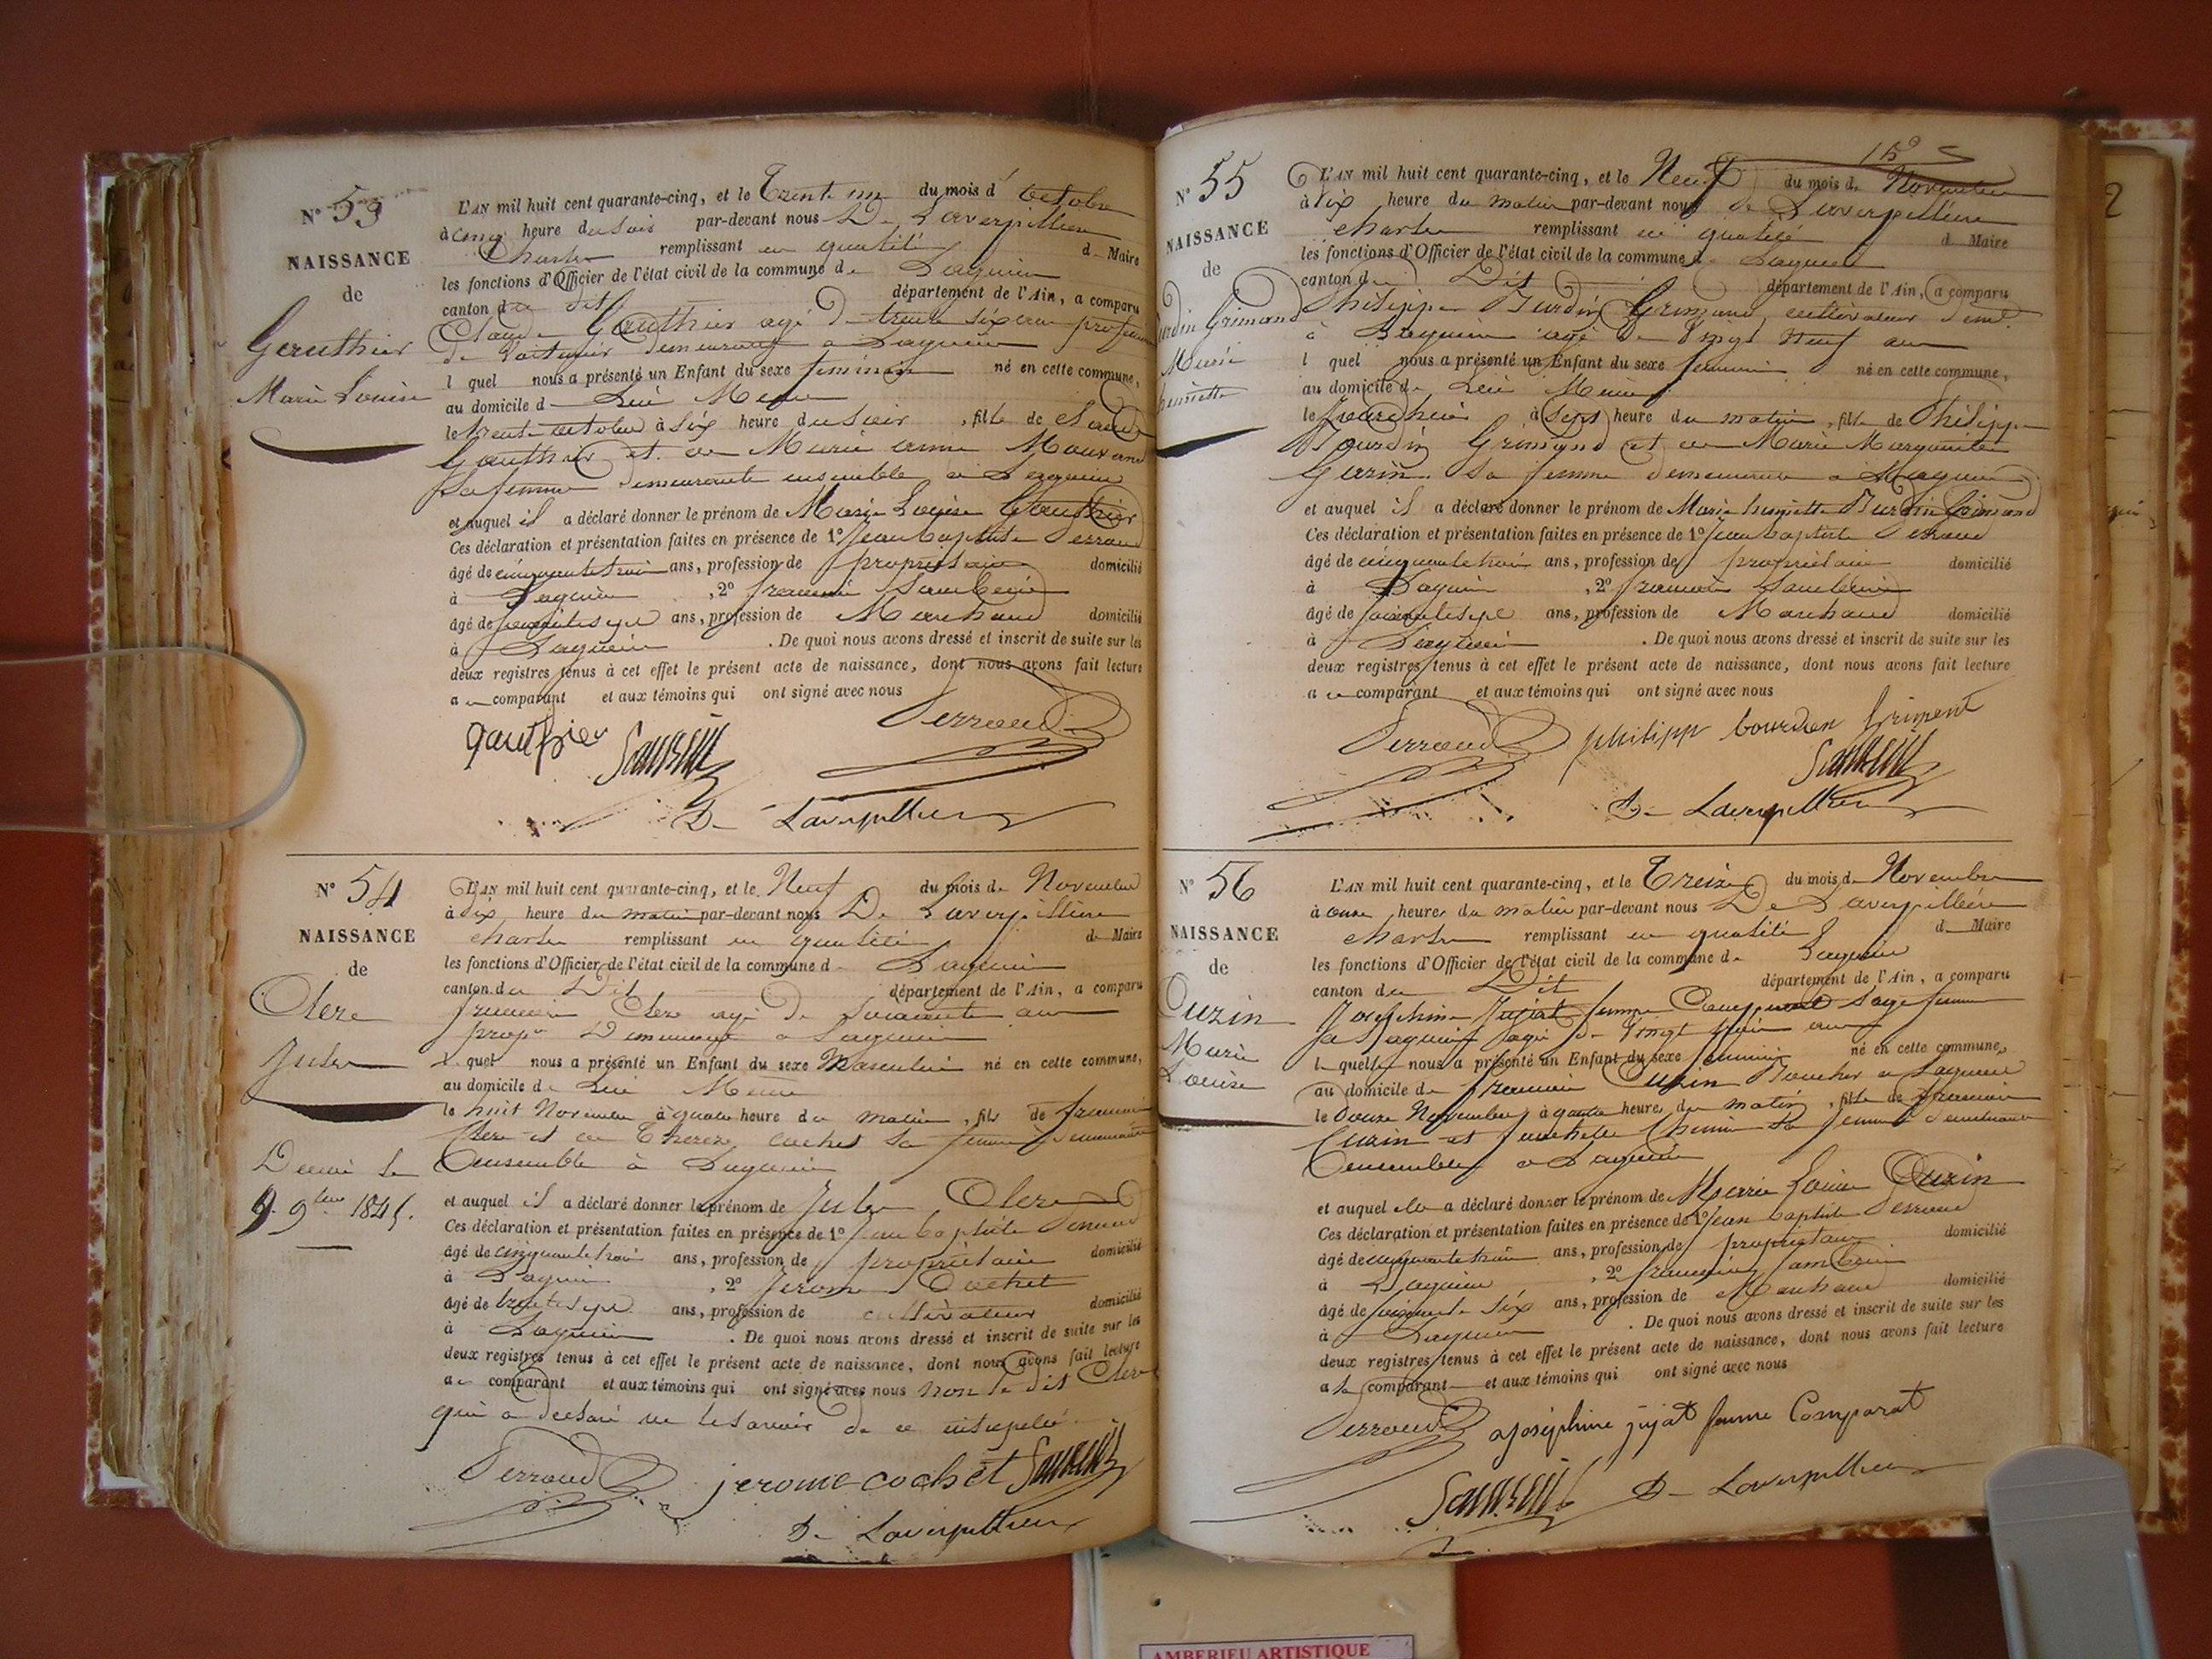 N° 53
NAISSANCE
de
Gauthier
Marie Louise
L'AN mil huit cent quarante-cinq, et le Trente un du mois d' Octobre
à cinq heure du soir par-devant nous De Laverpillière
Charles remplissant en qualité de Maire
les fonctions d'Officier de l'état civil de la commune de Lagnieu
canton du dit département de l'Ain, a comparu
Claude Gauthier agé de trente six ans profession
de voiturier demeurant a Lagnieu
l quel nous a présenté un Enfant du sexe féminin né en cette commune,
au domicile d
le trente octobre à six heure du soir, fille de Claude
Gauthier et de Marie anne
sa femme demeurants ensemble à Lagnieu
et auquel il a déclaré donner le prénom de Marie Louise Gauthier
Ces déclaration et présentation faites en présence de 1° Jean baptiste Perraud
âgé de cinquante trois ans, profession de propriétaire domicilié
à Lagnieu, 2° françois
âgé de soixante sept ans, profession de Marchand domicilié
à Lagnieu. De quoi nous avons dressé et inscrit de suite sur les
deux registres tenus à cet effet le présent acte de naissance, dont nous avons fait lecture
au comparant et aux témoins qui ont signé avec nous
gauthier Perraud
De Laverpillière
N° 54
NAISSANCE
de
Clere
Jules
Décédé le
9 9bre 1845.
L'AN mil huit cent quarante-cinq, et le Neuf du mois de Novembre
à dix heure du matin par-devant nous De Laverpillière
charles remplissant en qualité de Maire
les fonctions d'Officier de l'état civil de la commune d Lagnieu
canton du Dit département de l'Ain, a comparu
françois Clere agé de soixante ans
propre Demeurant a Lagnieu
Le quel nous a présenté un Enfant du sexe Masculin né en cette commune,
au domicile de
le huit Novembre à quatre heure du matin, fils de françois
Clere et de Thereze cochet sa femme demeurants
Ensemble à Lagnieu
et auquel il a déclaré donner le prénom de Jules Clere
Ces déclaration et présentation faites en présence de 1° Jean baptiste Perraud
âgé de cinquante trois ans, profession de propriétaire domicilié
à Lagnieu, 2° Jerome Cochet
âgé de trente sept ans, profession de cultivateur domicilié
à Lagnieu. De quoi nous avons dressé et inscrit de suite sur les
deux registres tenus à cet effet le présent acte de naissance, dont nous avons fait lecture
au comparant et aux témoins qui ont signé avec nous non le dit Clere
qui a declaré ne le savoir de ce
Perraud jerome cochet
De Laverpillière
N° 55
NAISSANCE
de
Grimand
Marie
henriette
L'AN mil huit cent quarante-cinq, et le Neuf du mois de Novembre
à dix heure du matin par-devant nous de Laverpillière
charles remplissant en qualité de Maire
les fonctions d'Officier de l'état civil de la commune de Lagnieu
canton du Dit département de l'Ain, a comparu
Philippe Burdin Grimand cultivateur
à Lagnieu agé de vingt neuf ans
l quel nous a présenté un Enfant du sexe feminin né en cette commune,
au domicile de
le à sept heure du matin, fille de Philippe
Bourdin Grimand et de Marie Marguerite
Garin sa femme demeurants a Lagnieu
et auquel il a déclaré donner le prénom de Marie henriette Burdin Grimand
Ces déclaration et présentation faites en présence de 1° Jean baptiste Perraud
âgé de cinquante trois ans, profession de propriétaire domicilié
à Lagnieu, 2° francois
âgé de soixante sept ans, profession de Marchand domicilié
à Lagnieu. De quoi nous avons dressé et inscrit de suite sur les
deux registres tenus à cet effet le présent acte de naissance, dont nous avons fait lecture
au comparant et aux témoins qui ont signé avec nous
Perraud philipp bourden Griment
De Laverpillière
N° 56
NAISSANCE
de
Cuzin
Marie
Louise
L'AN mil huit cent quarante-cinq, et le Treize du mois de Novembre
à onze heures du matin par-devant nous De Laverpillière
charles remplissant en qualité de Maire
les fonctions d'Officier de l'état civil de la commune de Lagnieu
canton du Dit département de l'Ain, a comparu
Josephine Jujat femme Comparat sage femme
a Lagnieu agée de vingt ans
l quelle nous a présenté un Enfant du sexe feminin né en cette commune,
au domicile de francois Cuzin Boucher a Lagnieu
le Douze Novembre à quatre heures du matin, fille de francois
Cuzin et sa femme demeurants
Ensemble a Lagnieu
et auquel elle a déclaré donner le prénom de Marie Louise Cuzin
Ces déclaration et présentation faites en présence de 1° Jean baptiste Perraud
âgé de cinquante trois ans, profession de propriétaire domicilié
à Lagnieu, 2° francois
âgé de soixante six ans, profession de Marchand domicilié
à Lagnieu. De quoi nous avons dressé et inscrit de suite sur les
deux registres tenus à cet effet le présent acte de naissance, dont nous avons fait lecture
a la comparant et aux témoins qui ont signé avec nous
Perraud Joséphine jujat femme Comparat
De Laverpillière
AMBERIEU ARTISTIQUE